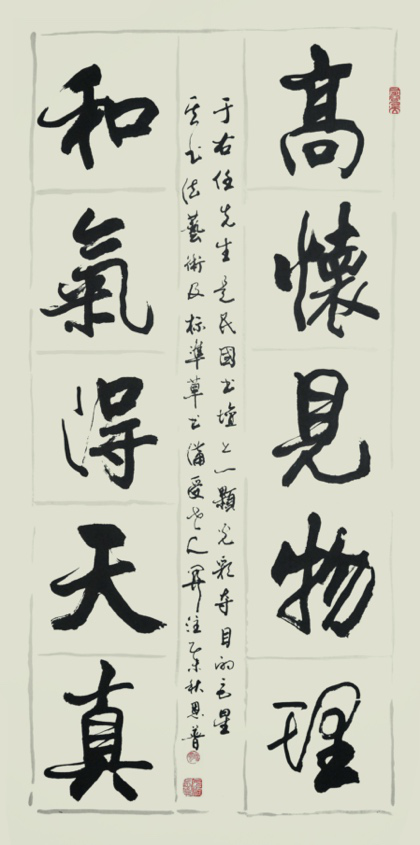 高懷見物理
于右任先生是民國書壇上一顆光彩奪目的巨星
其書法藝術及标準草書備受世人関注乙未秋恩普
和氣得天真